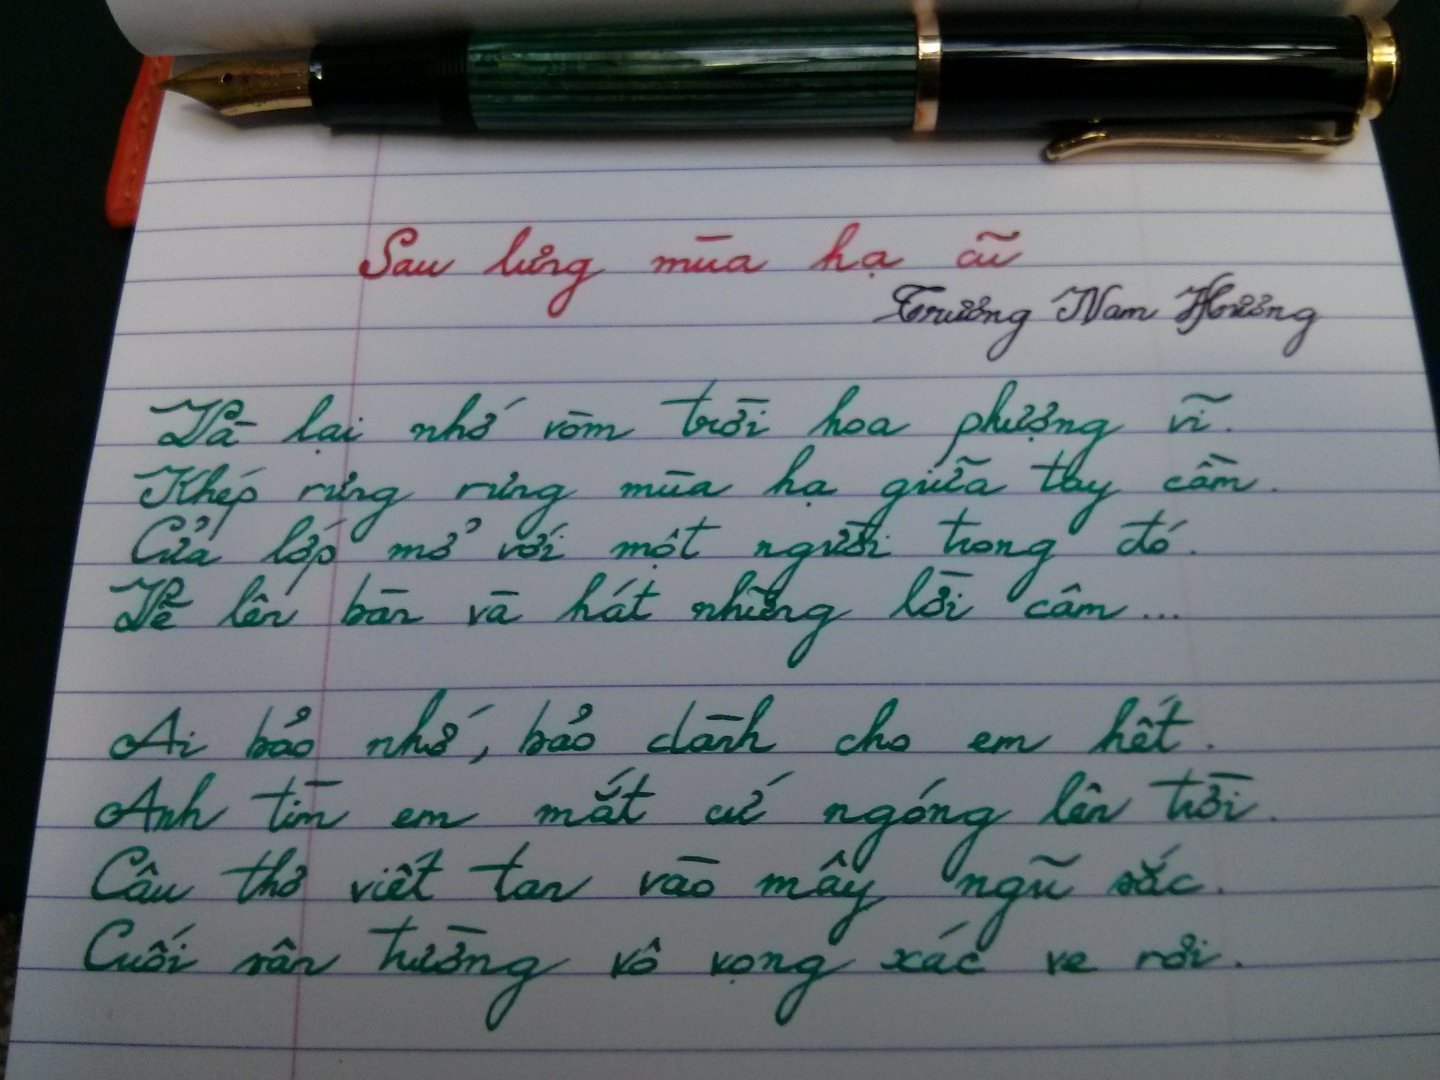 Sau lưng mùa hạ cũ
Trương Nam Hương
Và lại nhớ vòm trời hoa phượng vĩ.
Khép rưng rưng mùa hạ giữa tay cầm.
Cửa lớp mở với một người trong đó.
Vẽ lên bàn và hát những lời câm...
Ai bảo nhớ, bảo dành cho em hết.
Anh tìm em mắt cứ ngóng lên trời.
Câu thơ viết tan vào mây ngũ sắc.
Cuối sân trường vô vọng xác ve rơi.